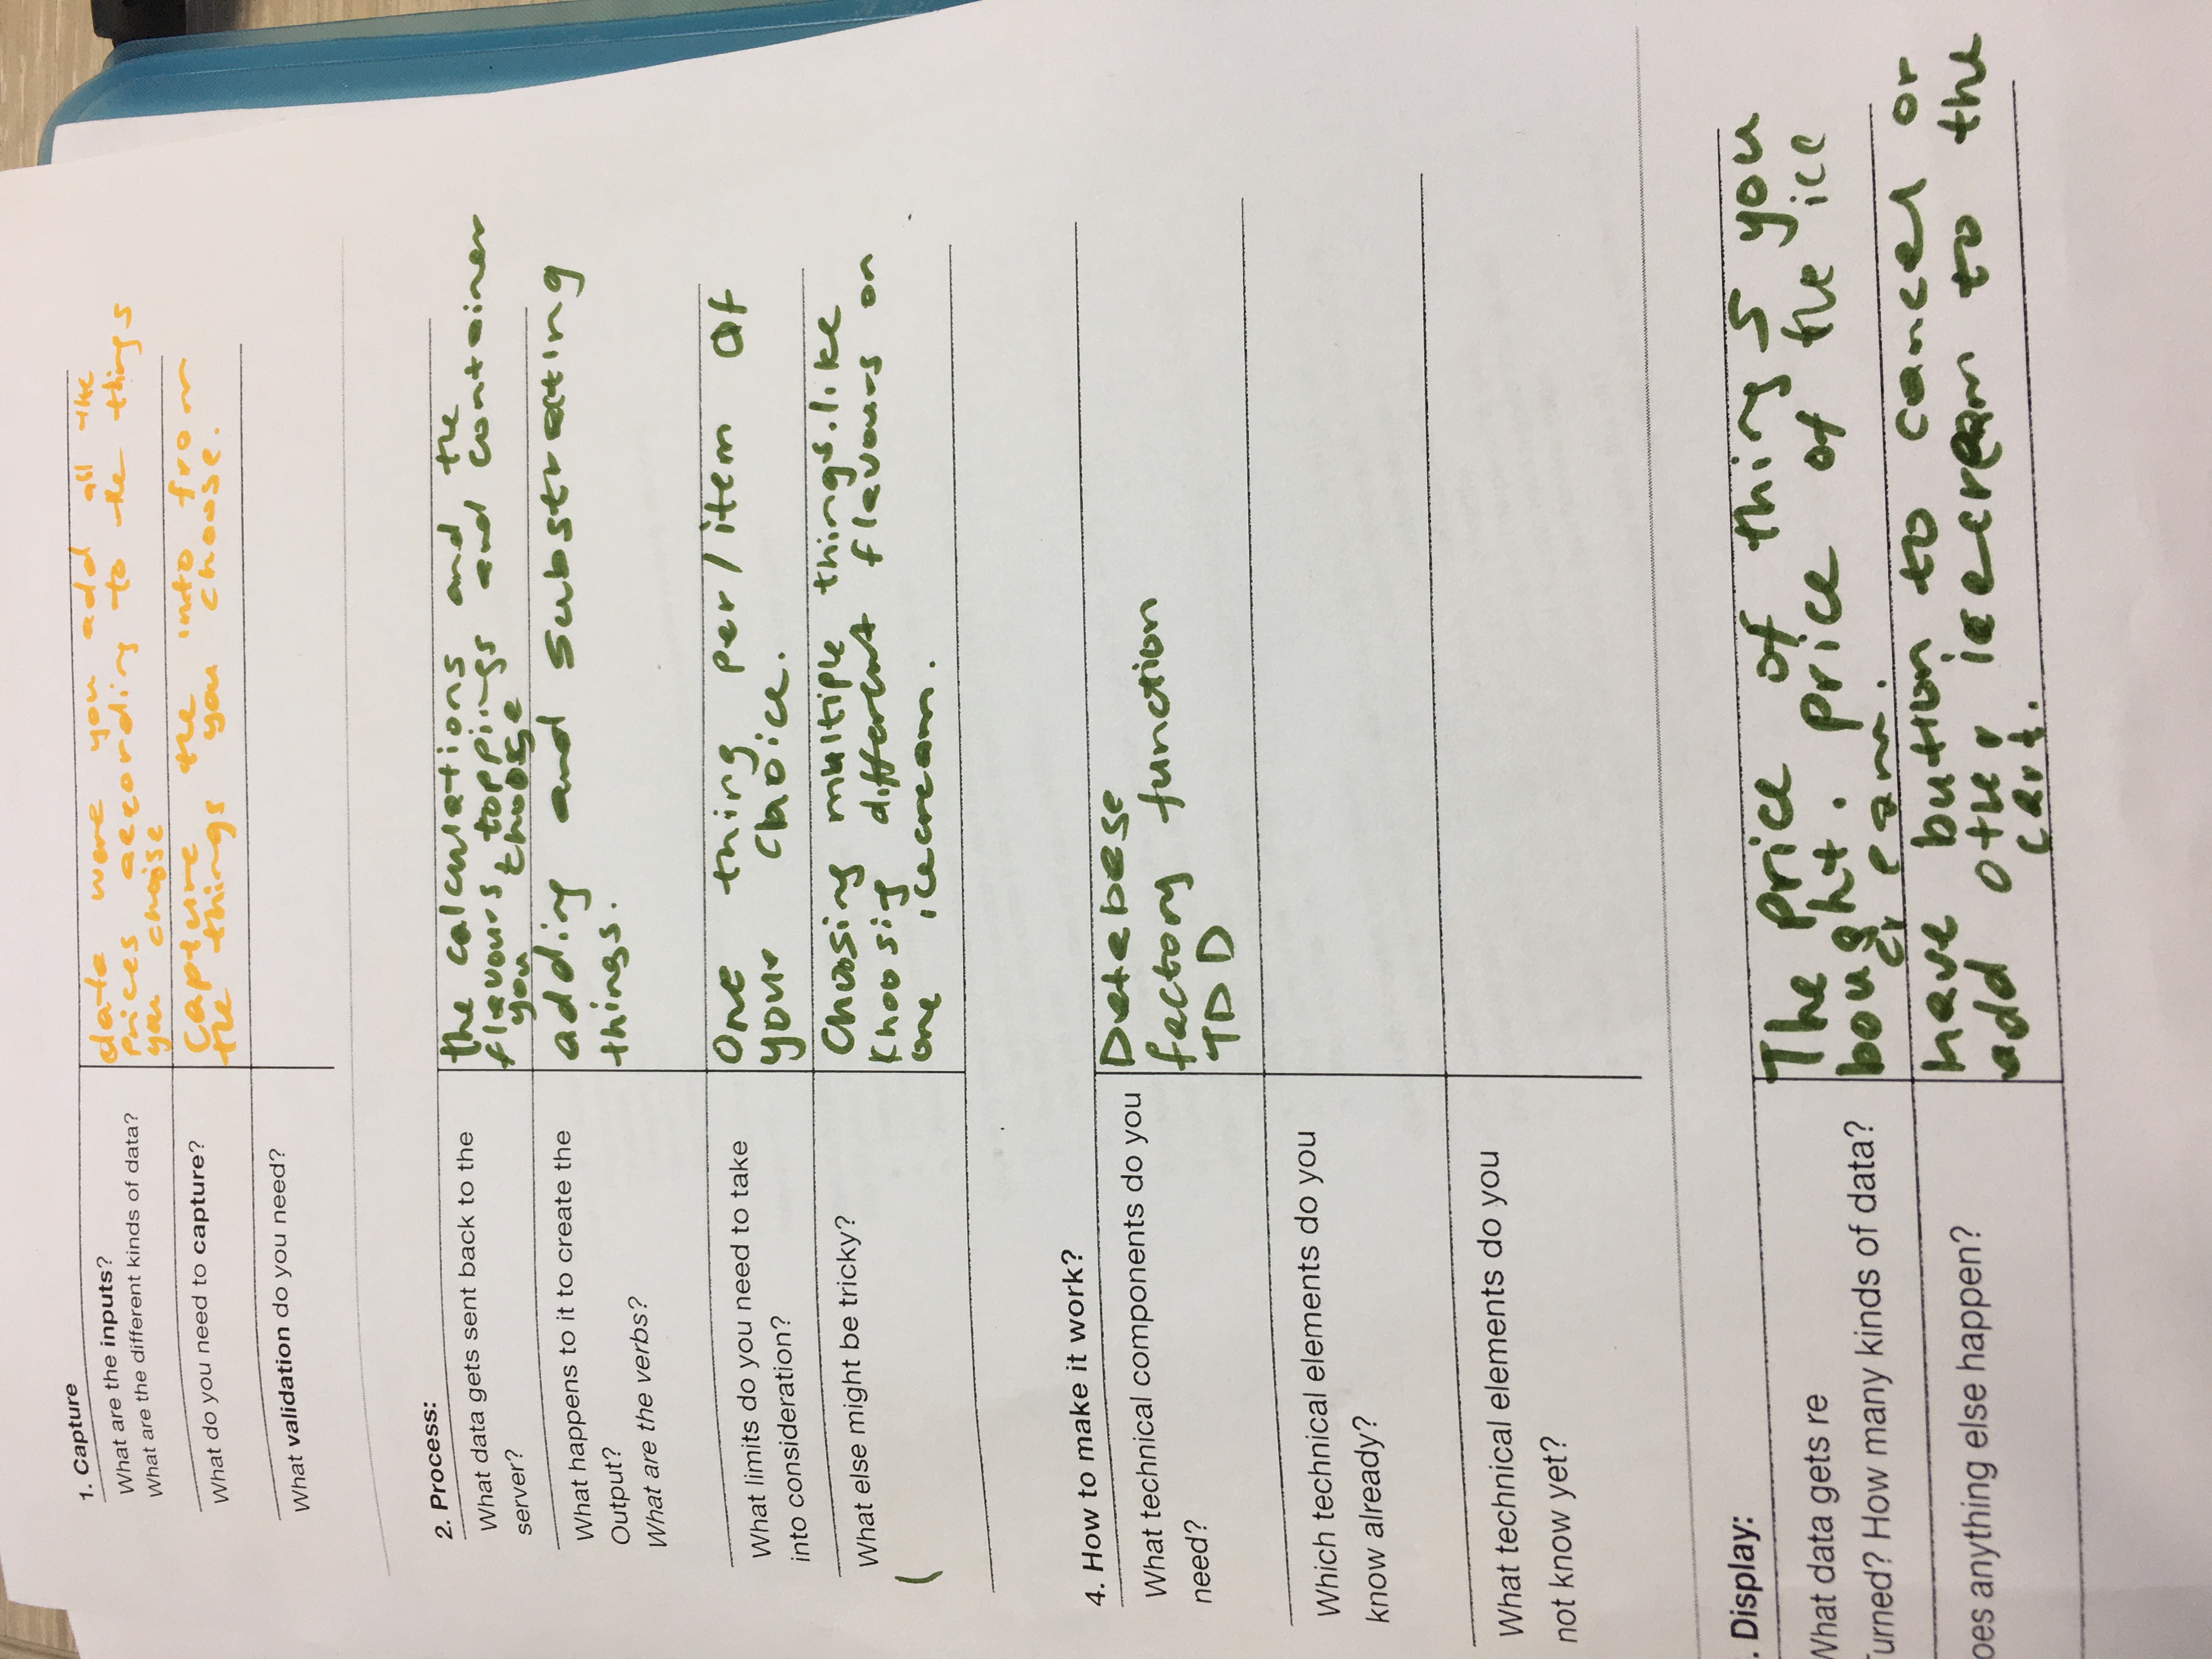 1. Capture
What are the inputs?
What are the different kinds of data?
data were you add all the
prices according to the things
you choise
What do you need to capture?
capture the info from
the things you choose.
What validation do you need?
2. Process:
What data gets sent back to the
server?
the calculations and the
flavours, toppings and container
you choose
What happens to it to create the
Output?
What are the verbs?
adding and substrating
things.
What limits do you need to take
into consideration?
One thing per/item of
your choice.
What else might be tricky?
Choosing multiple things.like
khoosig different flavours on
one icecream.
(
4. How to make it work?
What technical components do you
need?
Database
factory function
TDD
Which technical elements do you
know already?
What technical elements do you
not know yet?
. Display:
What data gets re
urned? How many kinds of data?
The price of things you
bought. price of the ice
cream.
oes anything else happen?
have button to cancel or
add other icecream to the
cart.